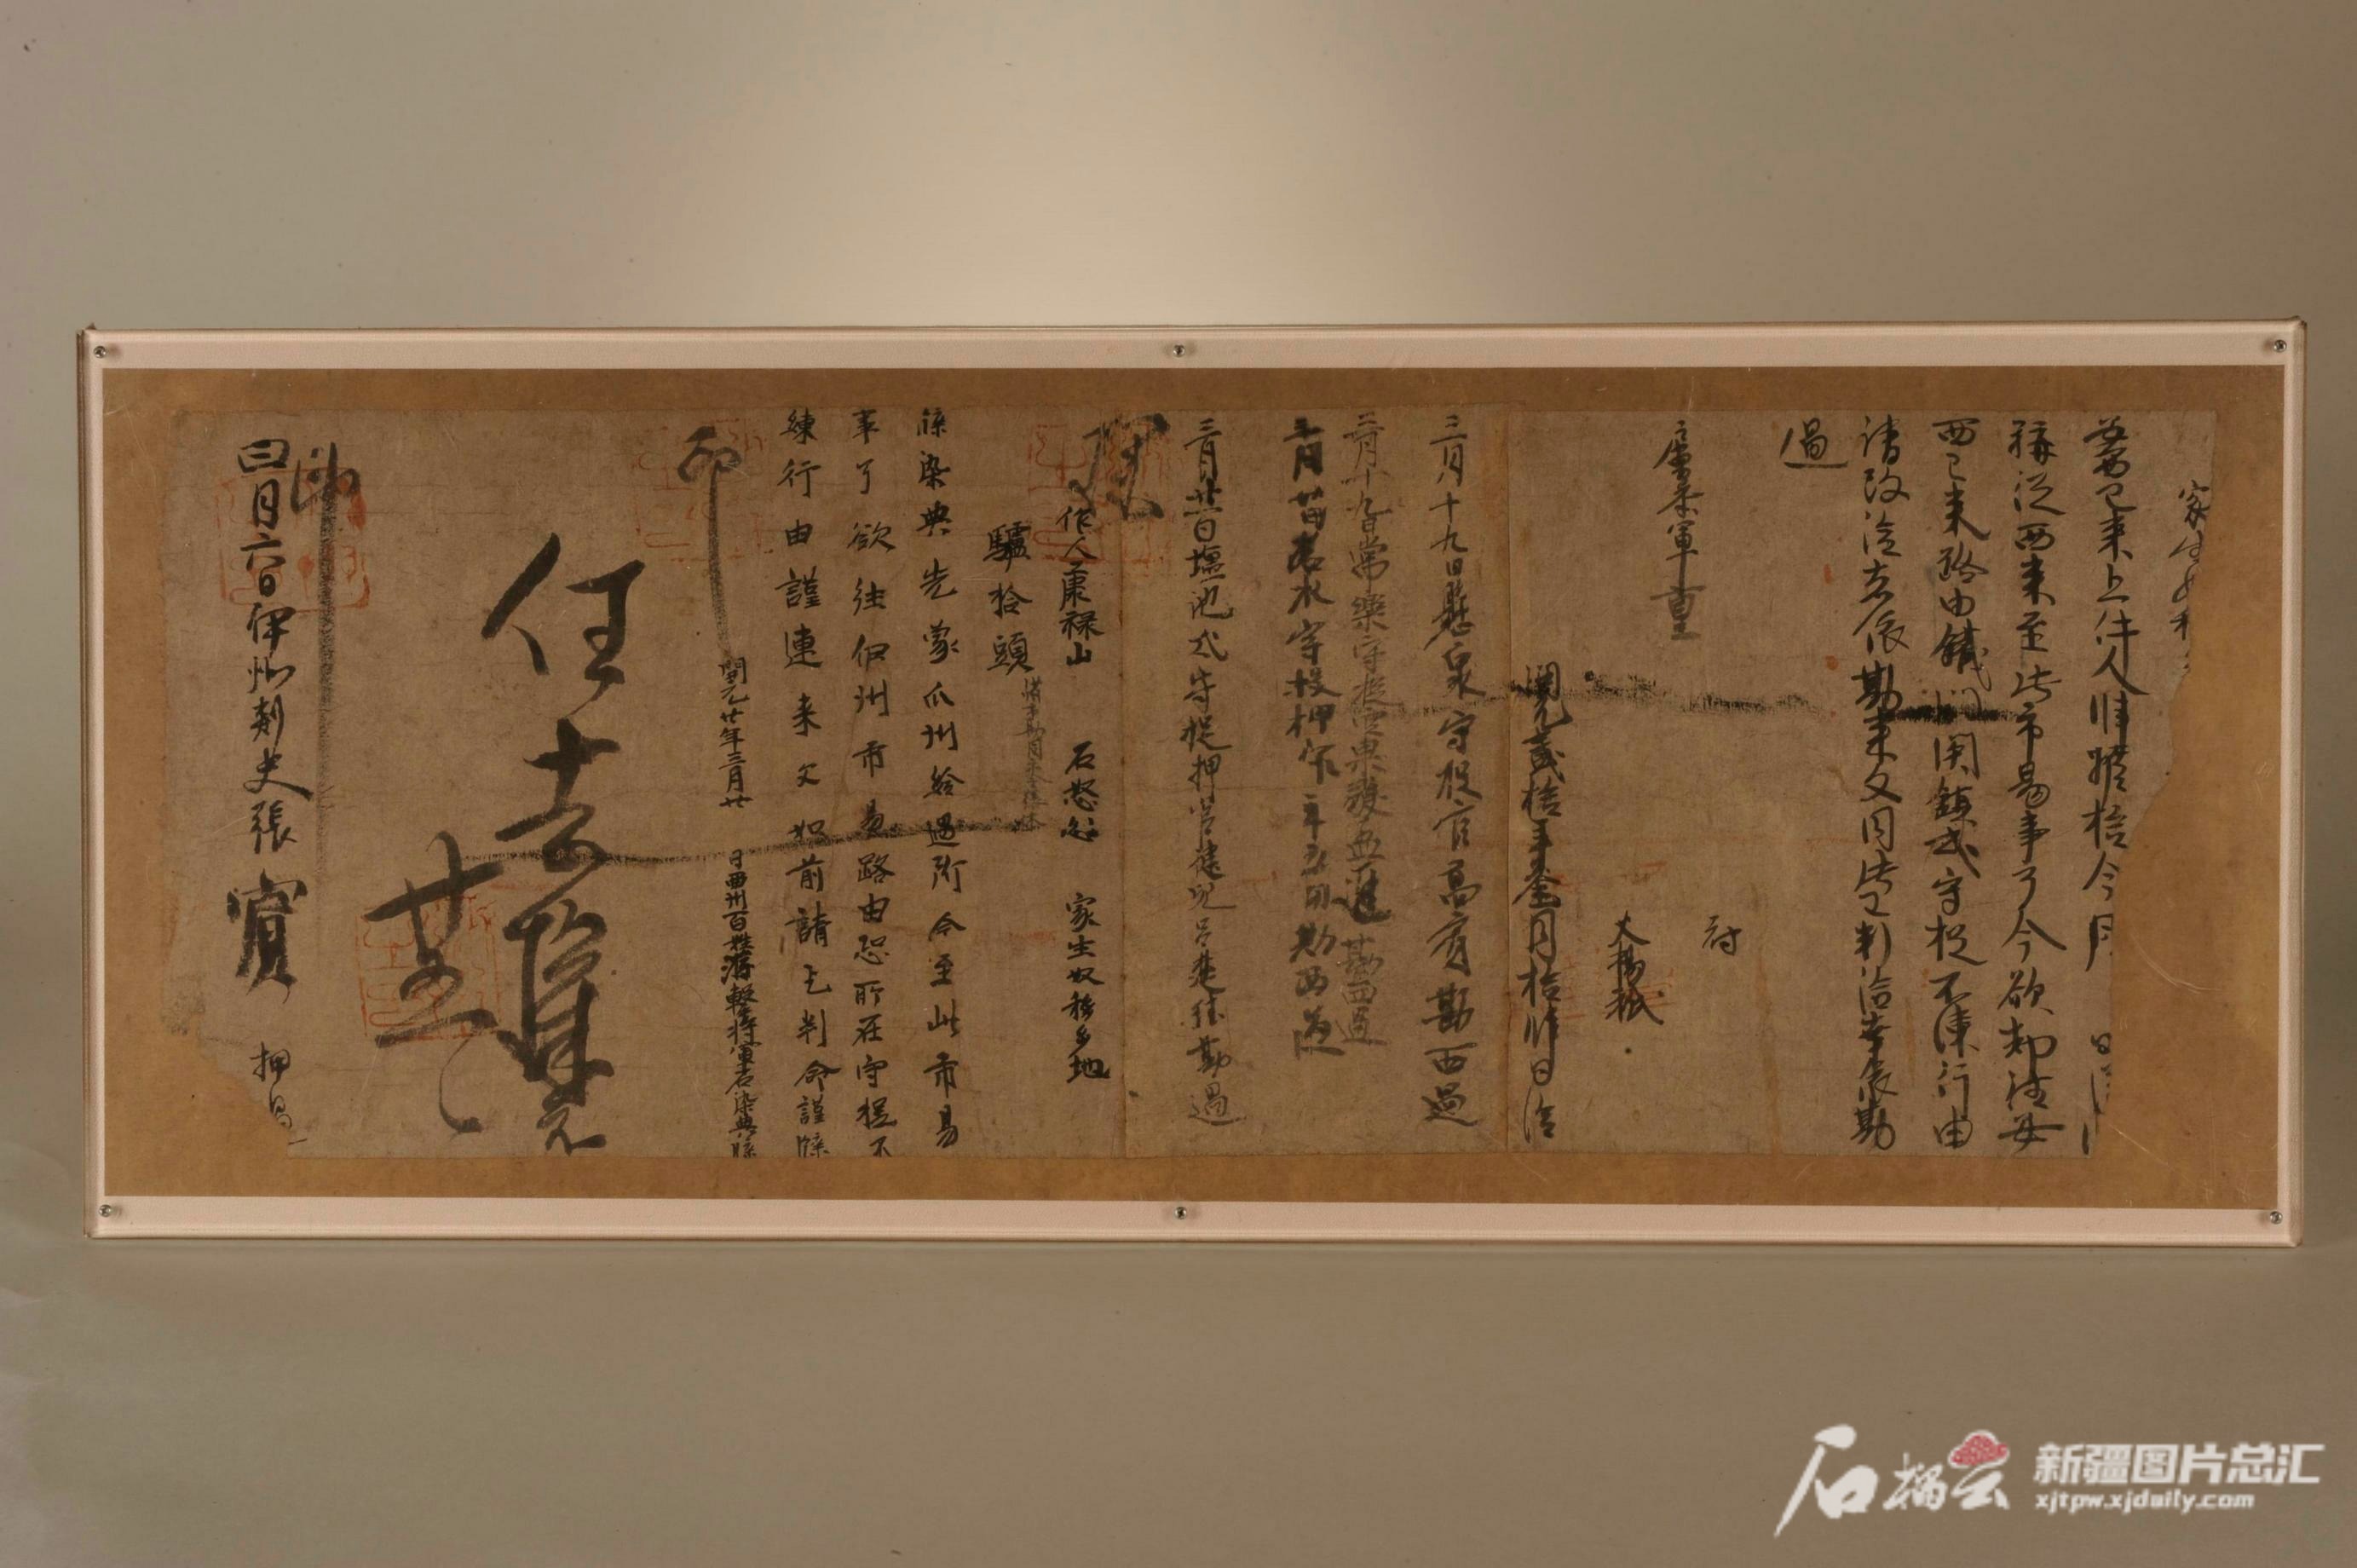 家生奴
安西已来上件人肆驴拾今月 日
称从西来至此市易事了今欲却往安
西已来路由铁门关镇戍守捉不练行由
请改给者依勘来文同此已判给幸依勘
过
府
户曹参军 亶
史杨祇
開元貳拾年叁月拾肆日给
三月十九日懸泉守捉官高賓勘西過
三月十九日常樂守捉官果毅孟進勘西過
三月廿日苦水守捉押官年五用勘西過
三月廿一日鹽池戍守捉押官健兒呂楚珪勘過
作人康禄山 石怒忿 家生奴移多地
驢拾頭
牒染典先蒙瓜州給過所今至此市易
事了欲往伊州市易路由恐所在守捉不
練行由謹連來文如前請乞判命謹牒
印
開元廿年三月廿 日西州百姓游擊將軍石染典牒
任去
琛示
廿五日
印
四月六日伊州刺史張賓 押過
石榴云
新疆图片总汇
xjtpw.xjdaily.com